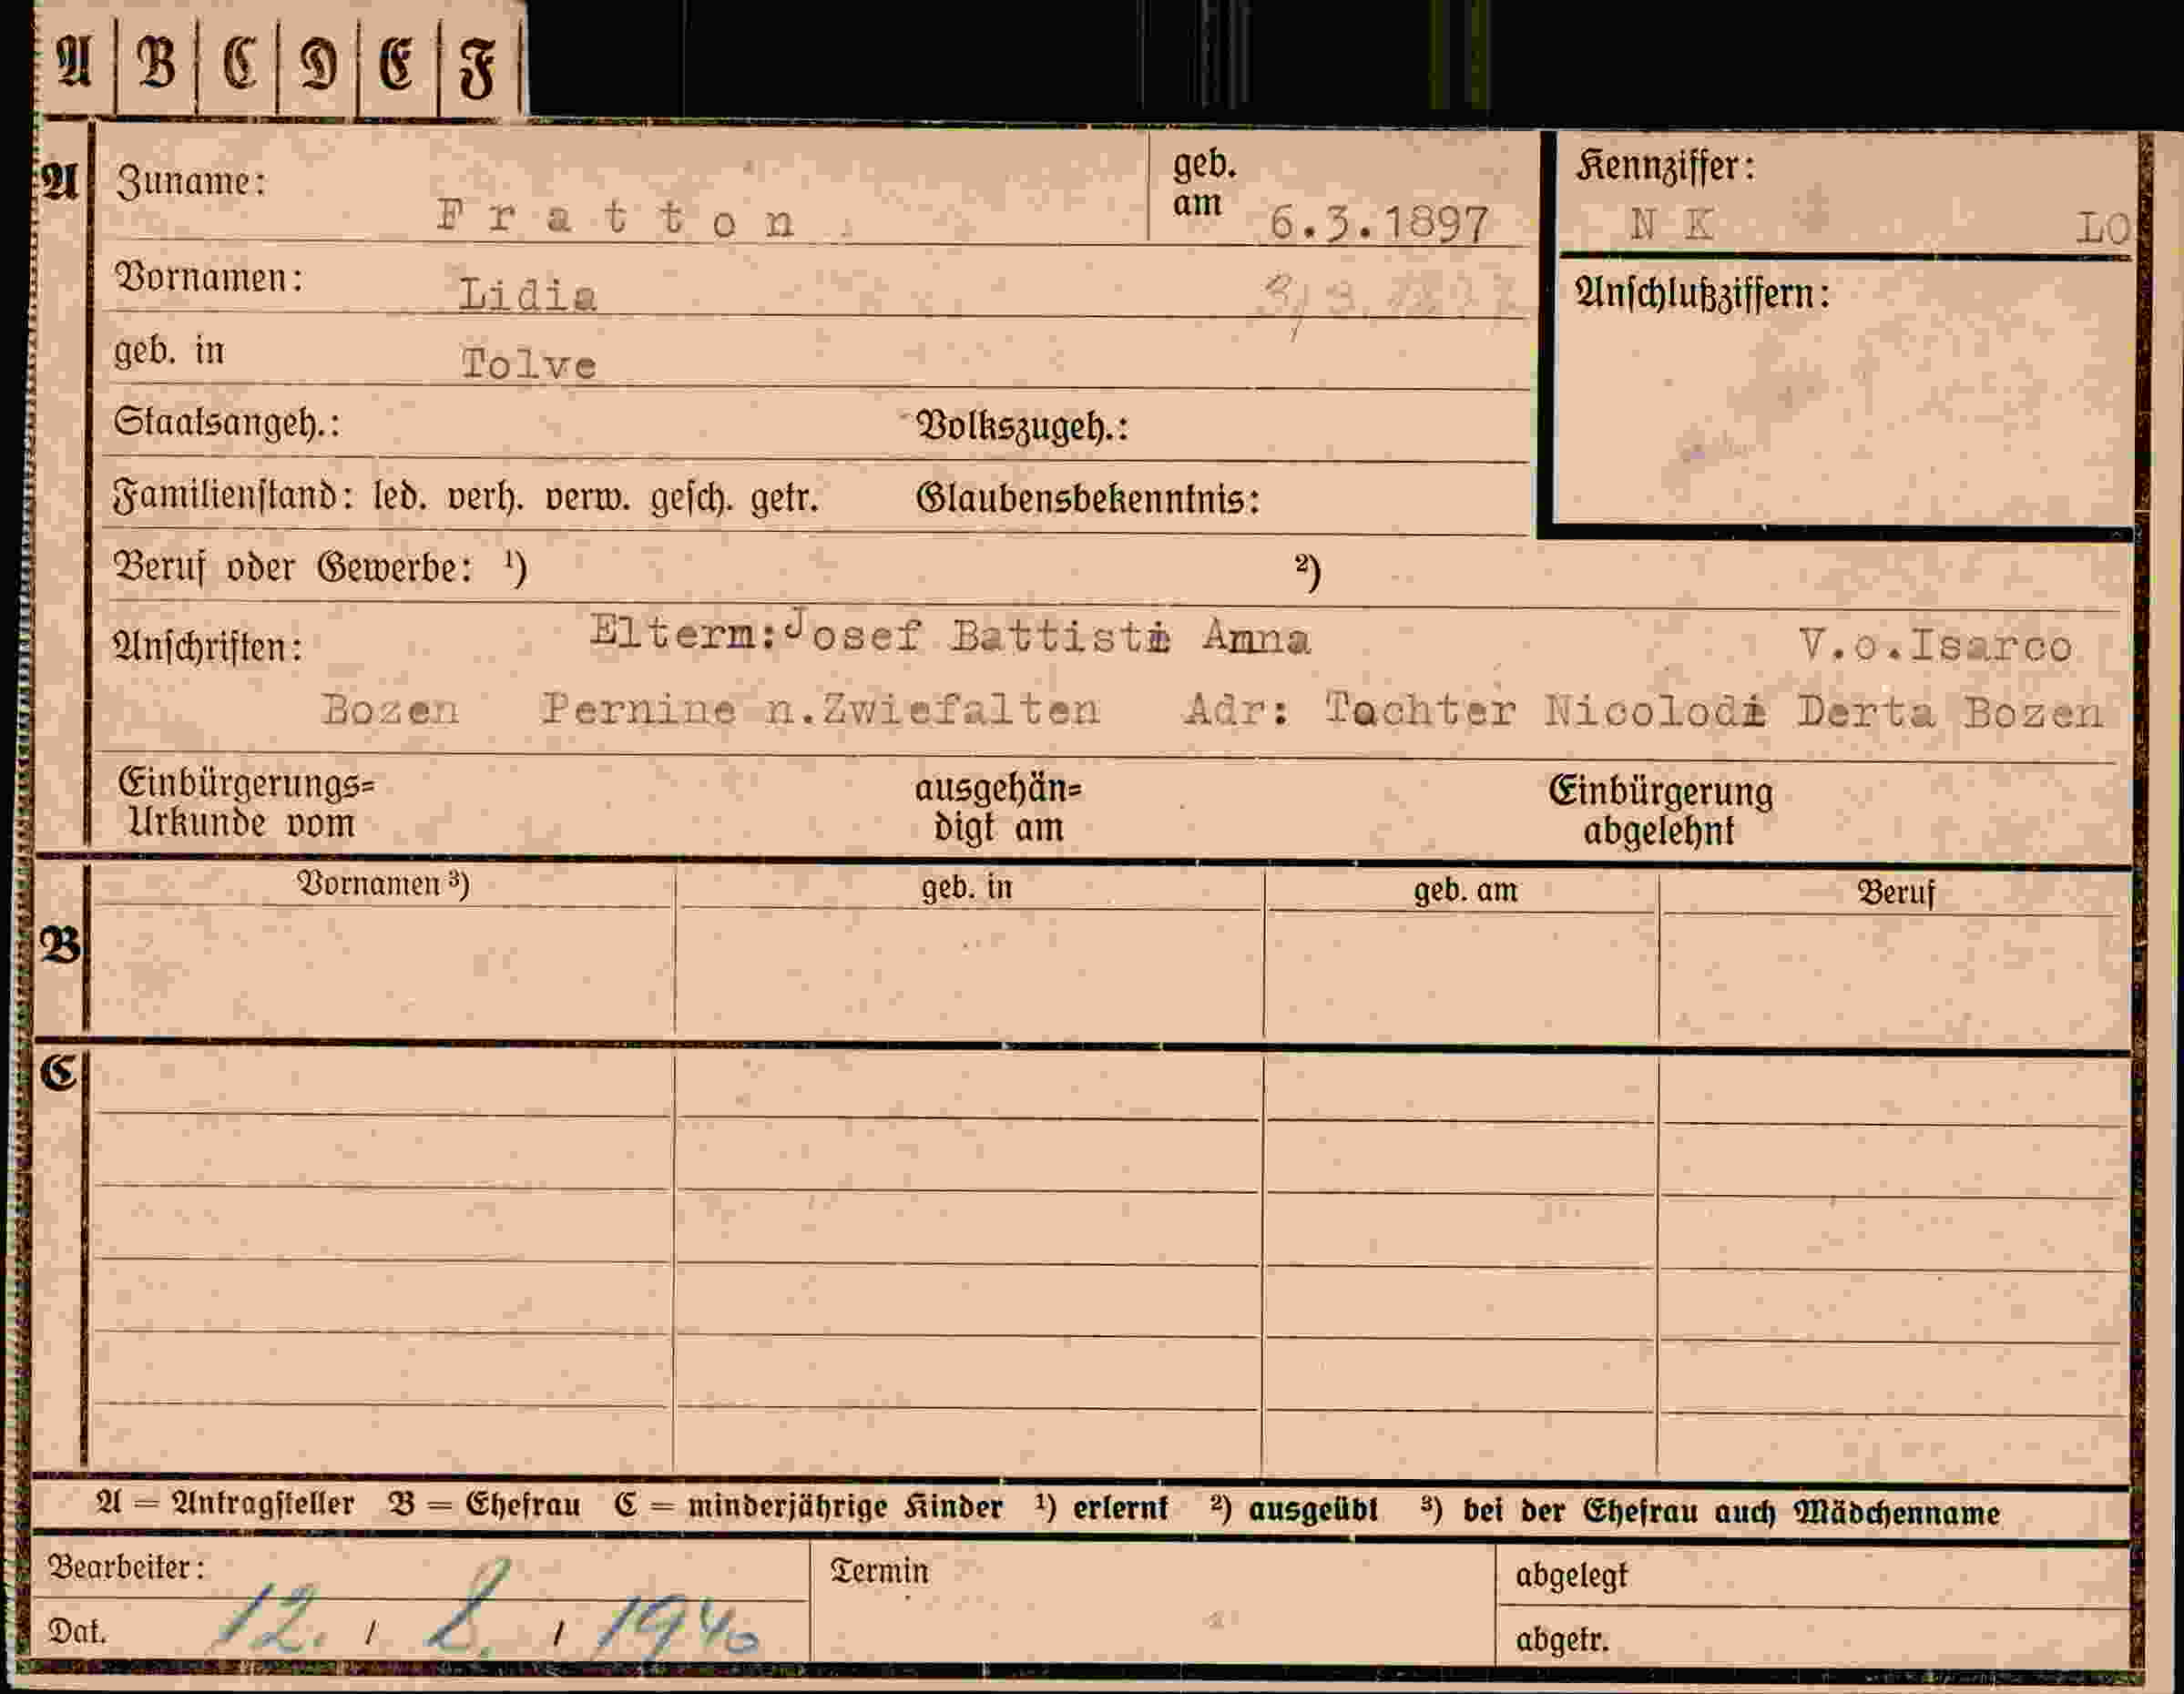 A B C D E F
A Zuname: Fratton geb. am 6.3.1897 Kennziffer: N K LO
Vornamen: Lidia Anschlußziffern:
geb. in Tolve
Staatsangeh.: Volkszugeh.:
Familienstand: led. verh. verw. gesch. getr. Glaubensbekenntnis:
Beruf oder Gewerbe: ¹) ²)
Anschriften: Elterm:Josef Battisti Amna V.o.Isarco
Bozen Pernine n.Zwiefalten Adr: Tochter Nicolodi Derta Bozen
Einbürgerungs= ausgehän= Einbürgerung
Urkunde vom digt am abgelehnt
Vornamen ³) geb. in geb. am Beruf
B
C
A = Antragsteller B = Ehefrau C = minderjährige Kinder ¹) erlernt ²) ausgeübt ³) bei der Ehefrau auch Mädchenname
Bearbeiter: Termin abgelegt
Dat. 12. / 2. / 1940 abgetr.